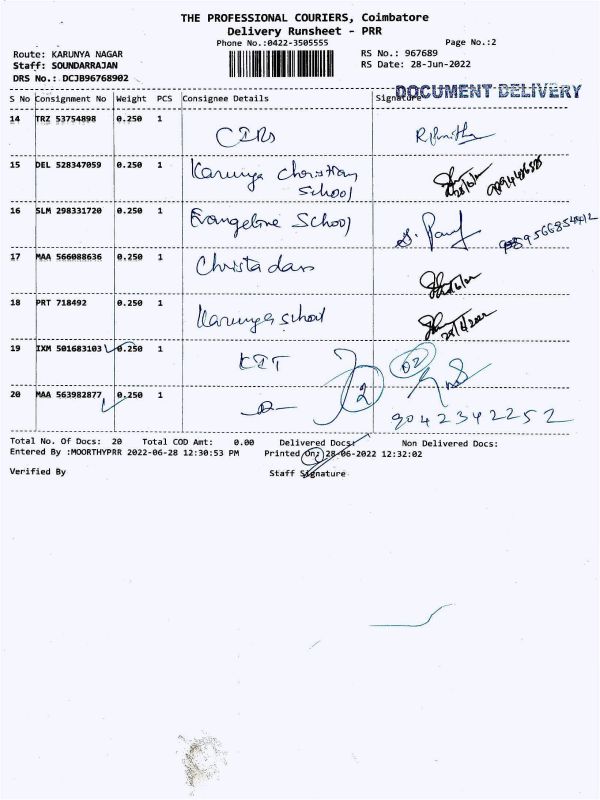 THE PROFESSIONAL COURIERS, Coimbatore
Delivery Runsheet - PRR
Phone No.:0422-3505555 Page No.:2
Route: KARUNYA NAGAR RS No.: 967689
Staff: SOUNDARRAJAN RS Date: 28-Jun-2022
DRS No.: DCJB96768902
DOCUMENT DELIVERY
S No Consignment No Weight PCS Consignee Details Signature
14 TRZ 53754898 0.250 1
15 DEL 528347059 0.250 1 Karunya Christian
School
16 SLM 298331720 0.250 1 Evangeline School
17 MAA 566088636 0.250 1 Christa dass
18 PRT 718492 0.250 1 Karunya School
19 IXM 501683103 0.250 1 02
20 MAA 563982877 0.250 1 2
9042342252
Total No. Of Docs: 20 Total COD Amt: 0.00 Delivered Docs: Non Delivered Docs:
Entered By :MOORTHYPRR 2022-06-28 12:30:53 PM Printed On: 28-06-2022 12:32:02
Verified By Staff Signature